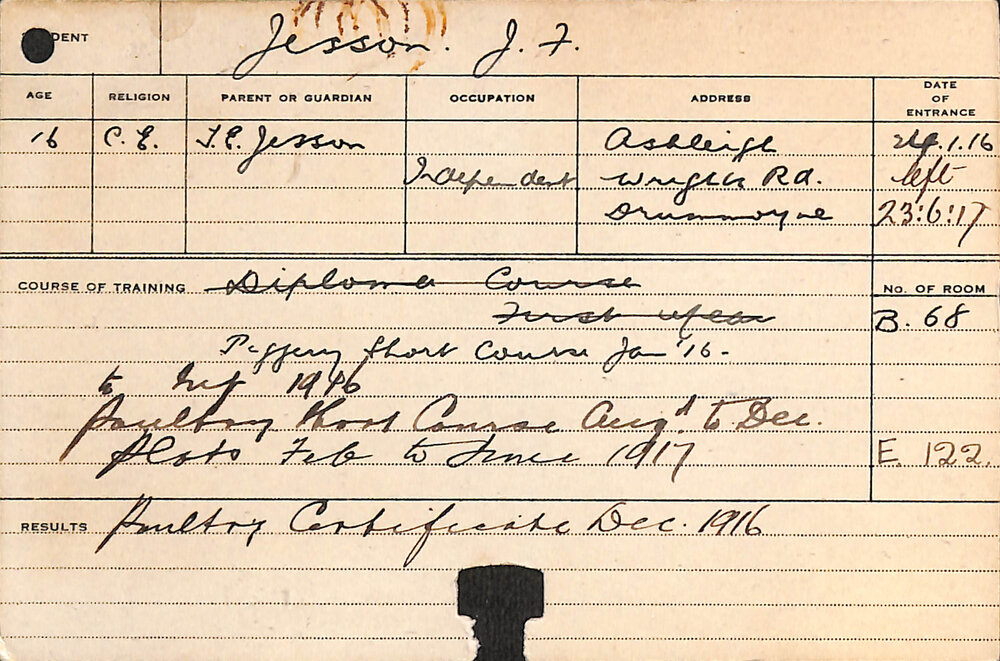 DENT Jesson. J. F.
AGE RELIGION PARENT OR GUARDIAN OCCUPATION ADDRESS DATE OF ENTRANCE
16 C.E. J.E. Jesson Ashleigh 24.1.16
Independent Wrights Rd. left
Drummoyne 23:6:17
COURSE OF TRAINING Diploma Course No. OF ROOM
First year B. 68
Piggery Short Course Jan '16 -
to 1916
Poultry Short Course Aug to Dec.
Plots Feb to June 1917 E. 122.
RESULTS Poultry Certificate Dec. 1916